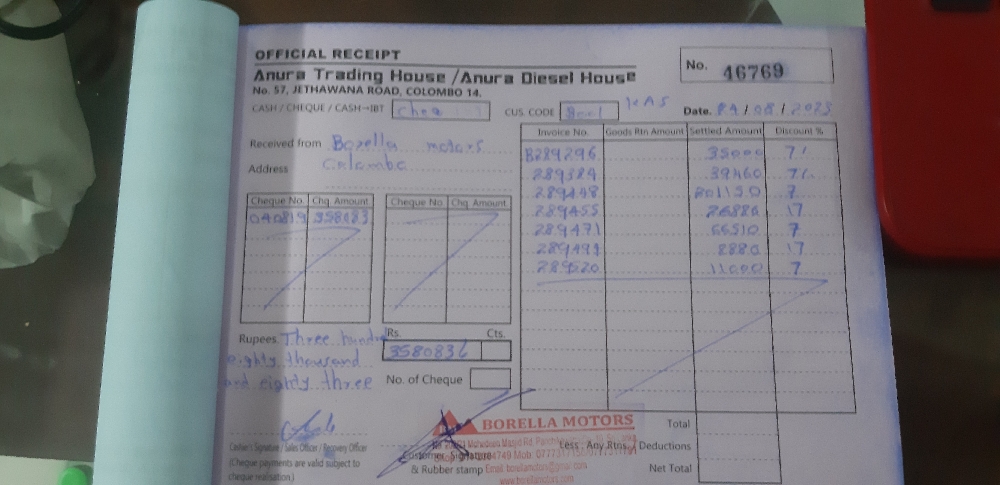 OFFICIAL RECEIPT
No. 46769
Anura Trading House / Anura Diesel House
No. 57, JETHAWANA ROAD, COLOMBO 14.
CASH / CHEQUE / CASH-IBT Cheq CUS. CODE KAS Date. /08/2023
Received from Borella motors
Address Colombo
Invoice No. Goods Rtn Amount Settled Amount Discount %
B289296 35000 7%
289384 39460
289448 7
289455 26880 17
289471 66510 7
289491 8880 17
289520 11000 7
Cheque No. Chq. Amount Cheque No. Chq. Amount
040819 358083
Rupees Three hundred
eighty thousand
and eighty three
Rs. Cts.
No. of Cheque
BORELLA MOTORS
Cashier's Signature / Sales Officer / Recovery Officer
(Cheque payments are valid subject to
cheque realisation)
Customer Signature
& Rubber stamp
Email: borellamotors@gmail.com
www.borellamotors.com
Total
Less : Any Rtns / Deductions
Net Total